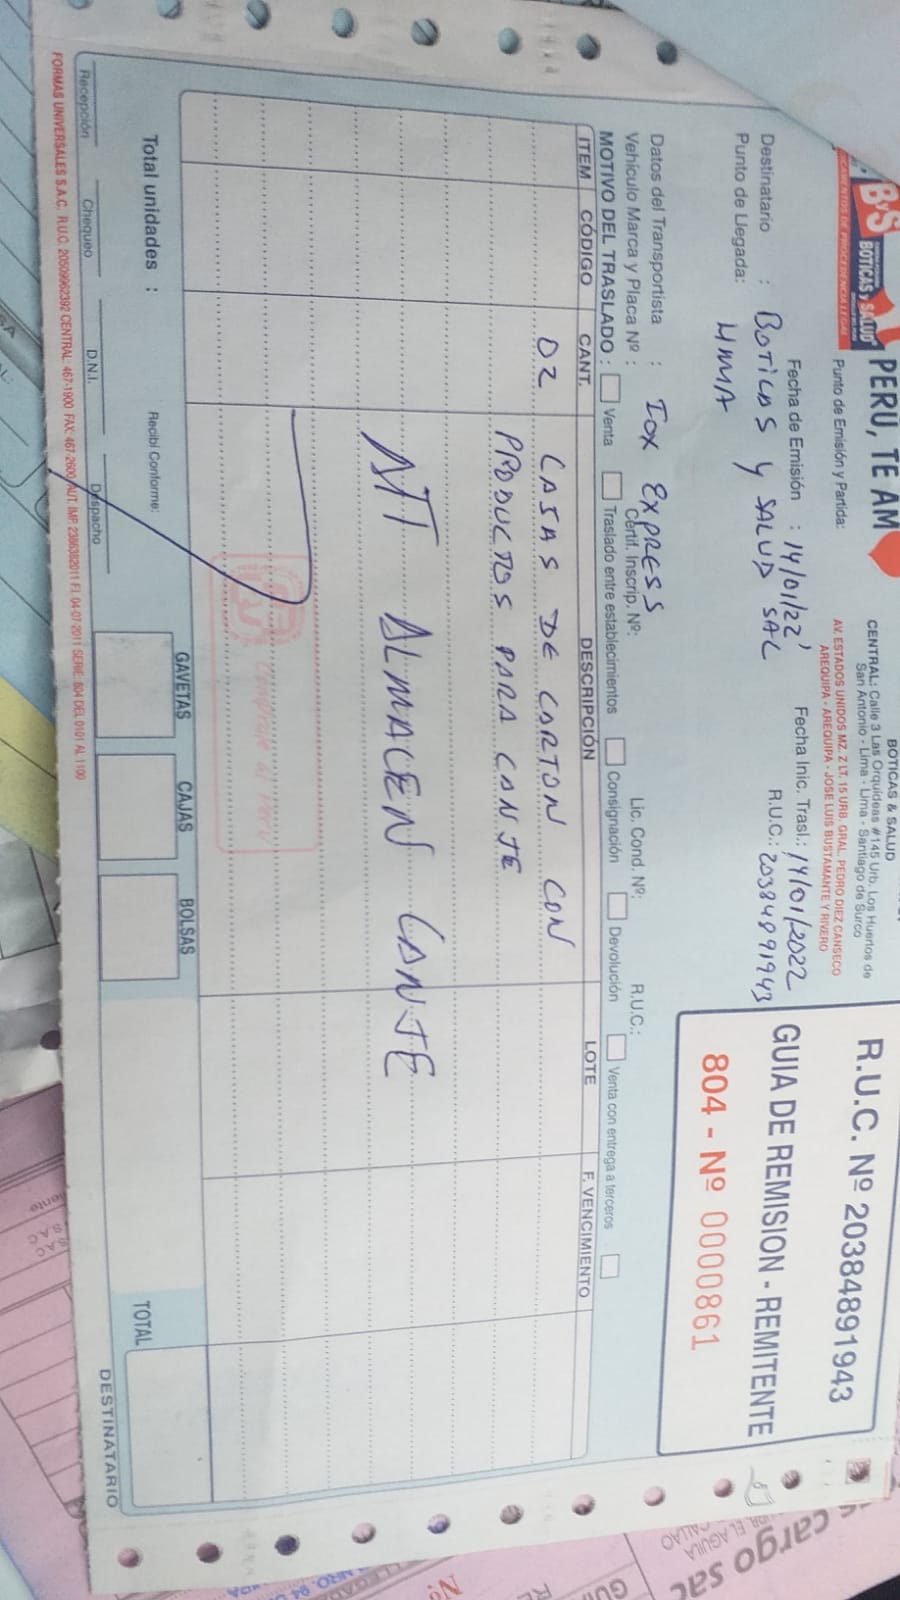 PERU, TE AM
BOTICAS y SALUD
BOTICAS & SALUD
CENTRAL: Calle 3 Las Orquideas #145 Urb. Los Huertos de
San Antonio - Lima - Lima - Santiago de Surco
Punto de Emisión y Partida:
AV. ESTADOS UNIDOS MZ. Z LT. 15 URB. GRAL. PEDRO DIEZ CANSECO
AREQUIPA - AREQUIPA - JOSE LUIS BUSTAMANTE Y RIVERO
R.U.C. Nº 20384891943
GUIA DE REMISION - REMITENTE
804 - Nº 0000861
Fecha de Emisión : 14/01/22 Fecha Inic. Trasl.: 14/01/2022
Destinatario : BOTICAS Y SALUD SAC R.U.C.: 20384891943
Punto de Llegada: LIMA
Datos del Transportista : IOX EXPRESS Lic. Cond. Nº: R.U.C.:
Vehículo Marca y Placa Nº : Certif. Inscrip. Nº:
MOTIVO DEL TRASLADO : Venta Traslado entre establecimientos Consignación Devolución Venta con entrega a terceros
ITEM CÓDIGO CANT. DESCRIPCIÓN LOTE F. VENCIMIENTO
02 CAJAS DE CARTON CON
PRODUCTOS PARA CANJE
ATT ALMACEN CANJE
GAVETAS CAJAS BOLSAS
Total unidades : Recibí Conforme: TOTAL
Recepción Chequeo D.N.I. Despacho
DESTINATARIO
FORMAS UNIVERSALES S.A.C. R.U.C. 20509962392 CENTRAL: 467-1900 FAX: 467-2600 AUT. IMP. 2386382011 F.I. 04-07-2011 SERIE: 804 DEL 0101 AL 1100
cargo sac